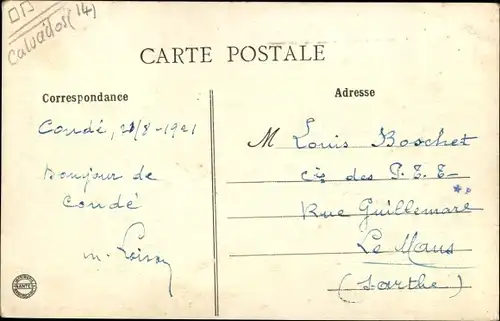 Calvados (14)
CARTE POSTALE
Correspondance
Adresse
Condé, 21/8-1921
Bonjour de
Condé
M Louis Boschet
cis des P.T.T
Rue Guillemare
Le Mans
(Sarthe)